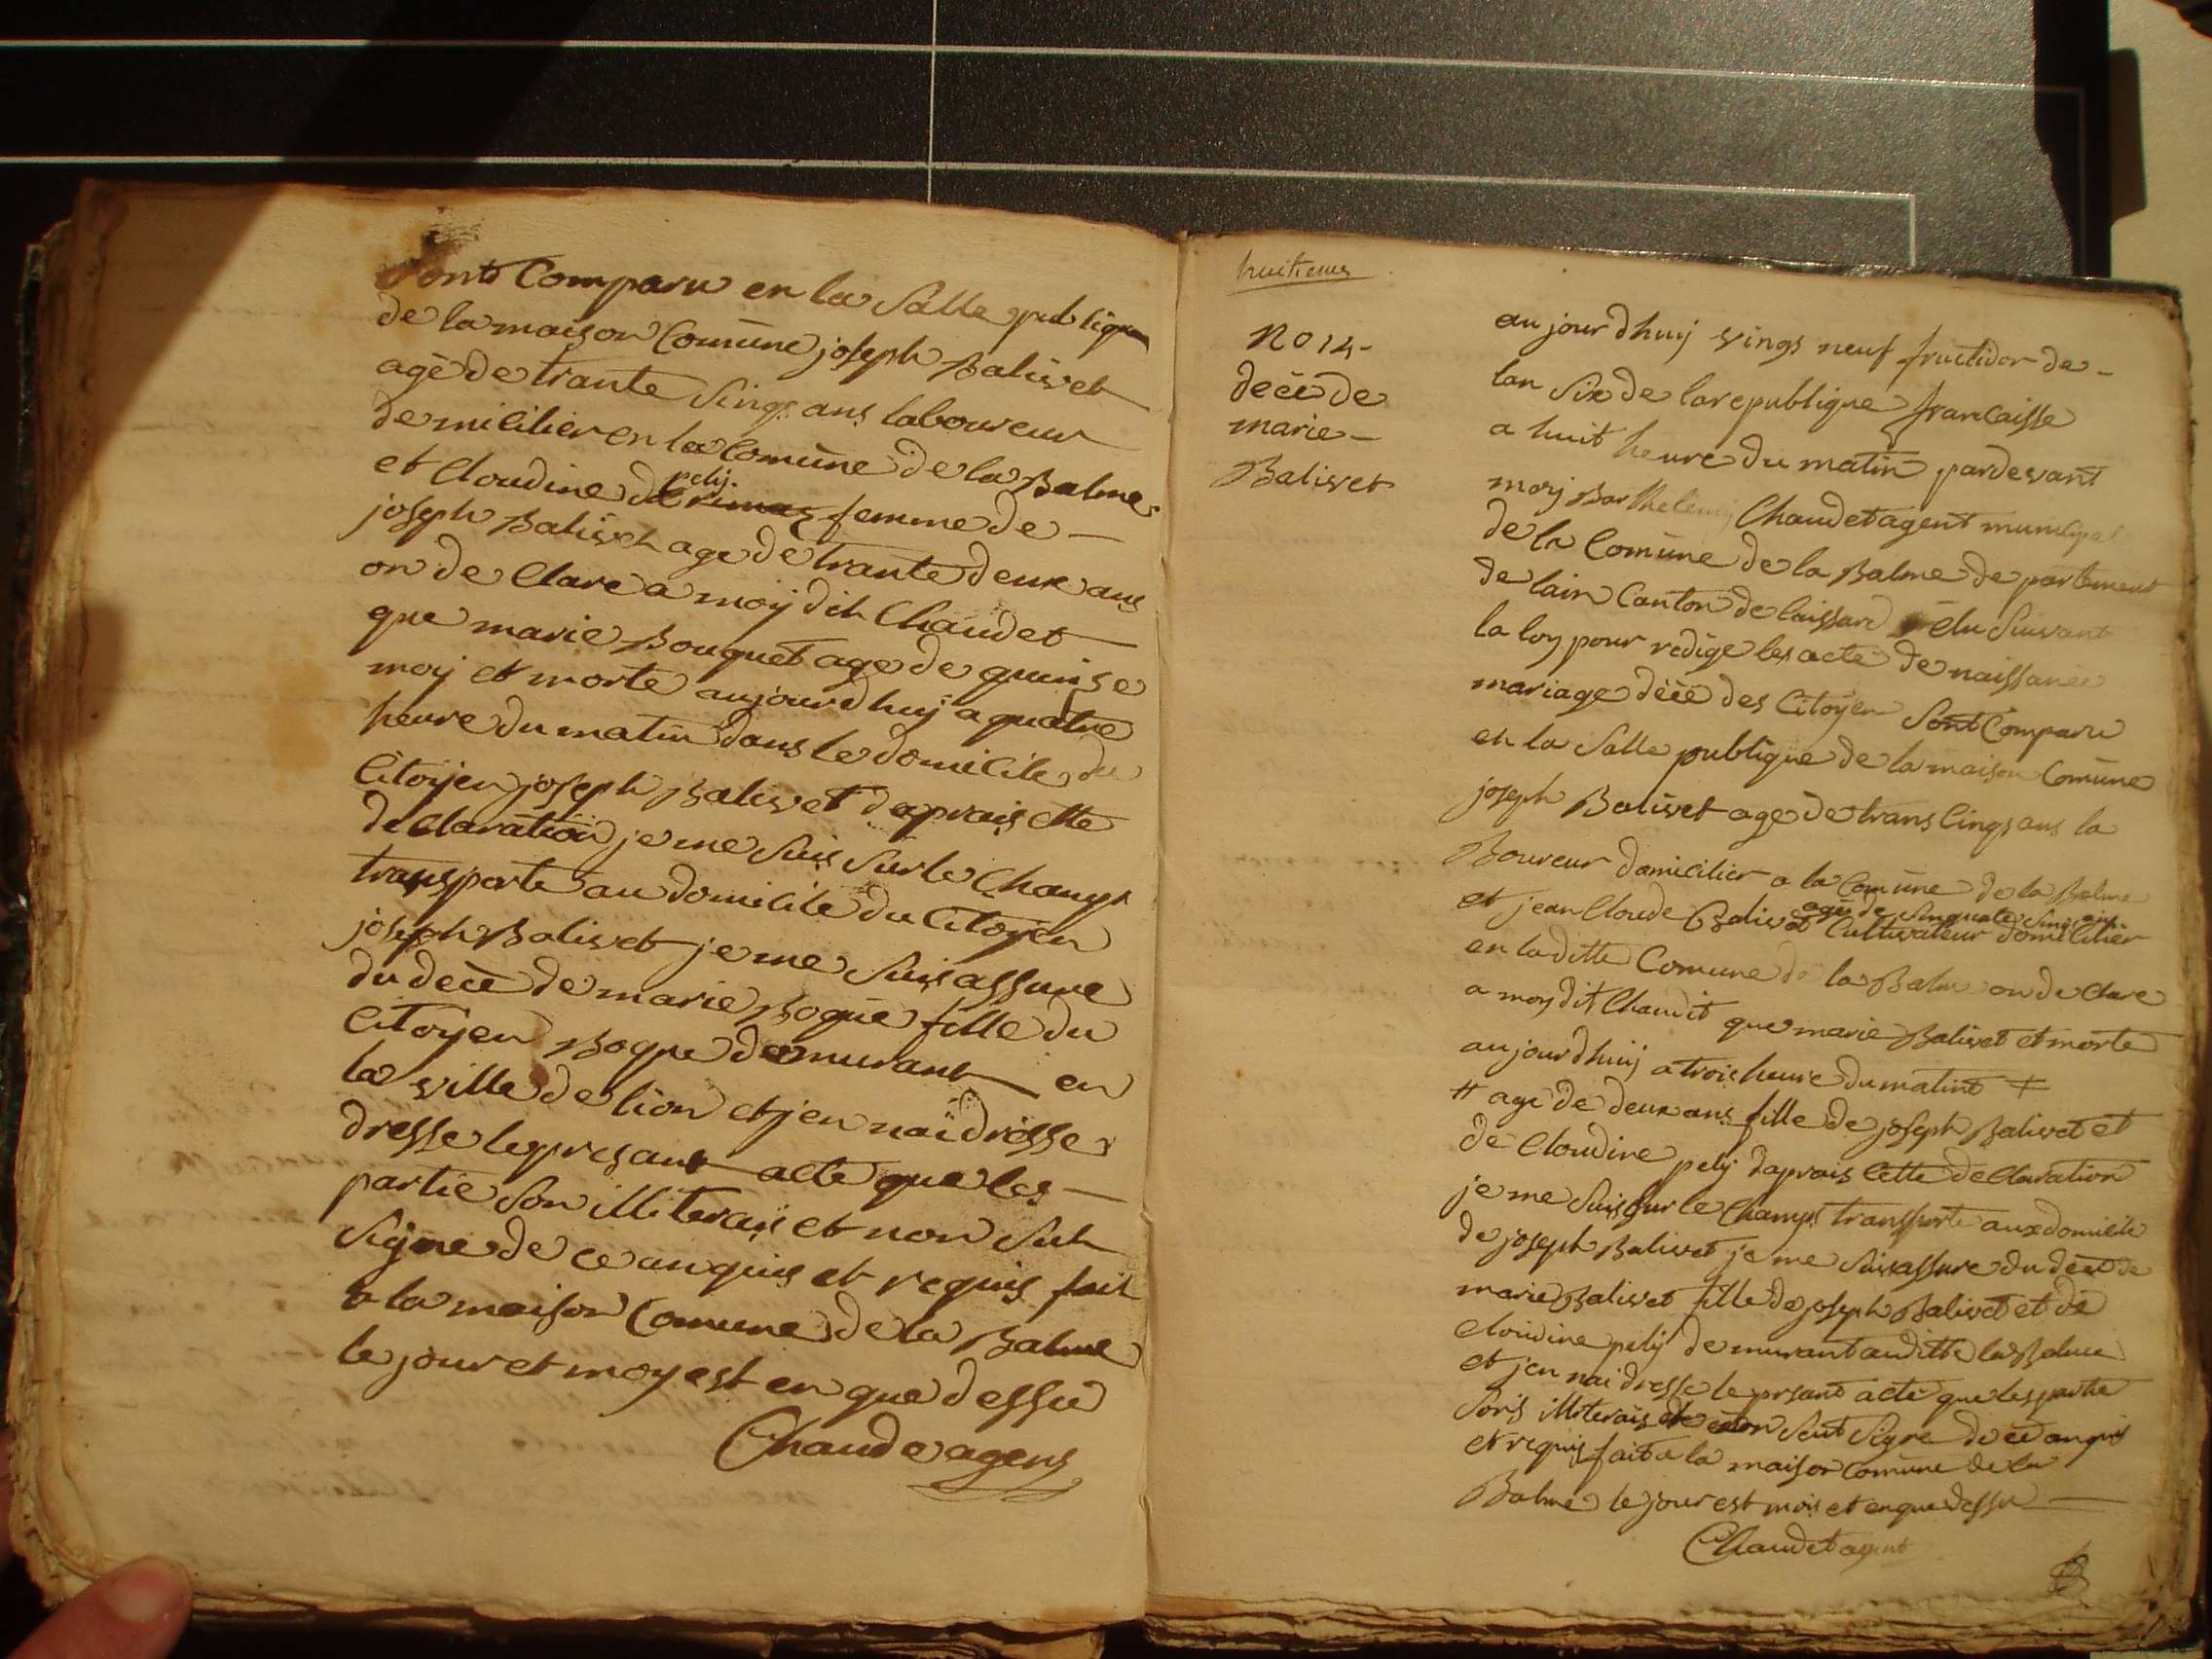 Sont Comparu en la Salle publique
de la maison Comüne joseph Balivet
agé de trante Sings ans laboureur
demicilier en la Comüne de la Balme
et Cloudine pelij femme de
joseph Balivet age de trante deux ans
on de Clare a moij dit Chaudet
que marie Bouquet age de quinse
moij et morte aujourdhuj a quatre
heure du matin dans le domicile du
Citoijen joseph Balivet daprais ette
declaration je me suis sur le Champs
transporte au domicile du Citoijen
joseph Balivet je me suis assure
du decè de marie Boque fille du
Citoijen Boque demurant en
la ville de lion et jen naï dresse
dresse le presant acte que les
partie son illiterais et non Sut
Signe de ce anquis et requis fait
a la maison Comune de la Balme
le jour et moy est en que dessu
Chaude agens
huitieme
No 14
decè de
marie
Balivet
aujourdhuij vings neuf fructidor de
lan Six de la republique francaisse
a huit heure du matin pardevant
moij Barthelemij Chaudet agent municipal
de la Comüne de la Balme departement
de lain Canton de laissard élu Suivant
la loy pour redige les acte de naissance
mariage décè des Citoyen Sont Comparu
en la Salle publique de la maison Comüne
joseph Balivet age de trans Cings ans la
Boureur domicilier a la Comüne de la Balme
agé de Sinquate Sings ans
et jean Cloude Balivet Cultivateur domicilier
en laditte Comune de la Balme on de Clare
a moy dit Chaudet que marie Balivet et morte
aujourdhuij a trois heure du matint #
# age de deux ans fille de joseph Balivet et
de Cloudine pelij daprais Cette deClaration
je me Suis Sur le Champs transporte aux domicile
de joseph Balivet je me Suis assure du decè de
marie Balivet fille de joseph Balivet et de
Cloudine pelij demurant auditte la Balme
et jen nai dresse le prsant acte que les partie
Sons illiterais et non Seut Signe de ce anquis
et requis fait a la maison Comüne de la
Balme le jour est mois et en que dessu
Chaudet agent